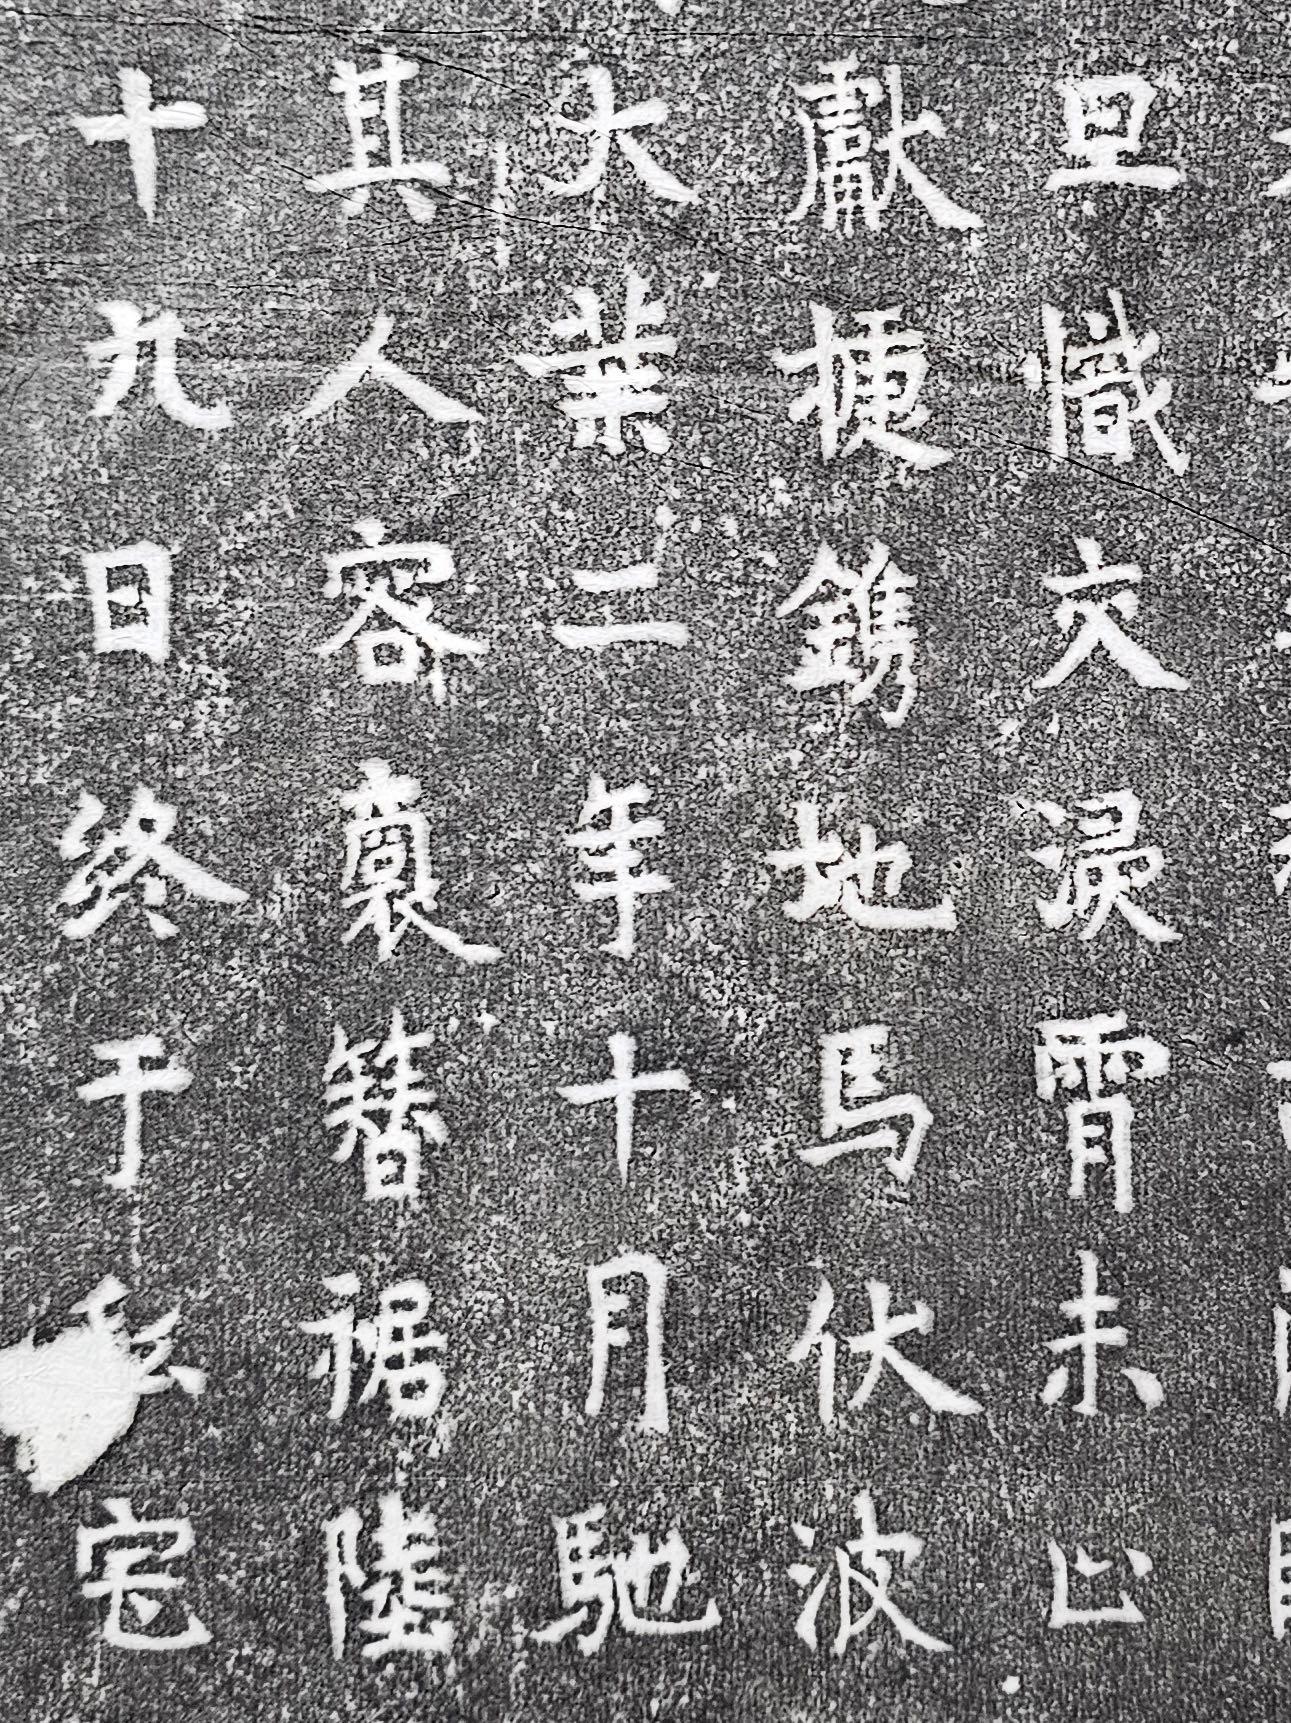 旦幟交浸霄未亡
獻捷鐫地馬伏波
大業二年十月馳
其人容裹簪裾陸
十九日終于私宅